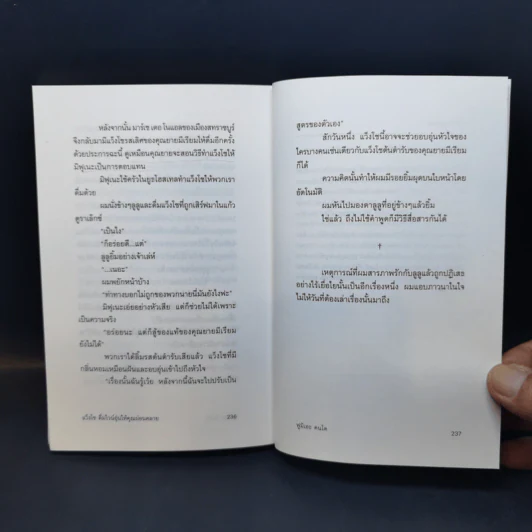 หลังจากนั้น มาร์เช เดอ โนแอลของเมืองสทราซบูร์
จึงกลับมามีแว็งโชรสเลิศของคุณยายมิเรียมให้ดื่มอีกครั้ง
ด้วยประการฉะนี้ ดูเหมือนคุณยายจะสอนวิธีทำแว็งโชให้
มิฟุเนะเป็นการตอบแทน
มิฟุเนะใช้ครัวในยูธโฮสเทลทำแว็งโชให้พวกเรา
ดื่มด้วย
ผมนั่งข้างๆลูลูและดื่มแว็งโชที่ถูกเสิร์ฟมาในแก้ว
ดูราเล็กซ์
"เป็นไง"
"ก็อร่อยดี...แต่"
ลูลูยิ้มอย่างเจ้าเล่ห์
"...เนอะ"
ผมพยักหน้าบ้าง
"ท่าทางบอกไม่ถูกของพวกนายนี่มันยังไงฟะ"
มิฟุเนะเอ่ยอย่างหัวเสีย แต่ก็ช่วยไม่ได้เพราะ
เป็นความจริง
"อร่อยนะ แต่ก็สู้ของแท้ของคุณยายมิเรียม
ยังไม่ได้"
พวกเราได้ลิ้มรสต้นตำรับเสียแล้ว แว็งโชที่มี
กลิ่นหอมเหมือนฝันและอบอุ่นเข้าไปถึงหัวใจ
"เรื่องนั้นฉันรู้เว้ย หลังจากนี้ฉันจะไปปรับเป็น
แว็งโช ดื่มไวน์อุ่นให้คุณผ่อนคลาย 236
สูตรของตัวเอง"
สักวันหนึ่ง แว็งโชนี้อาจจะช่วยอบอุ่นหัวใจของ
ใครบางคนเช่นเดียวกับแว็งโชต้นตำรับของคุณยายมิเรียม
ก็ได้
ความคิดนั้นทำให้ผมมีรอยยิ้มผุดบนใบหน้าโดย
อัตโนมัติ
ผมหันไปมองตาลูลูที่อยู่ข้างๆแล้วยิ้ม
ใช่แล้ว ถึงไม่ใช้คำพูดก็มีวิธีสื่อสารกันได้
†
เหตุการณ์ที่ผมสารภาพรักกับลูลูแล้วถูกปฏิเสธ
อย่างไร้เยื่อใยนั้นเป็นอีกเรื่องหนึ่ง ผมแอบภาวนาในใจ
ไม่ให้วันที่ต้องเล่าเรื่องนั้นมาถึง
237